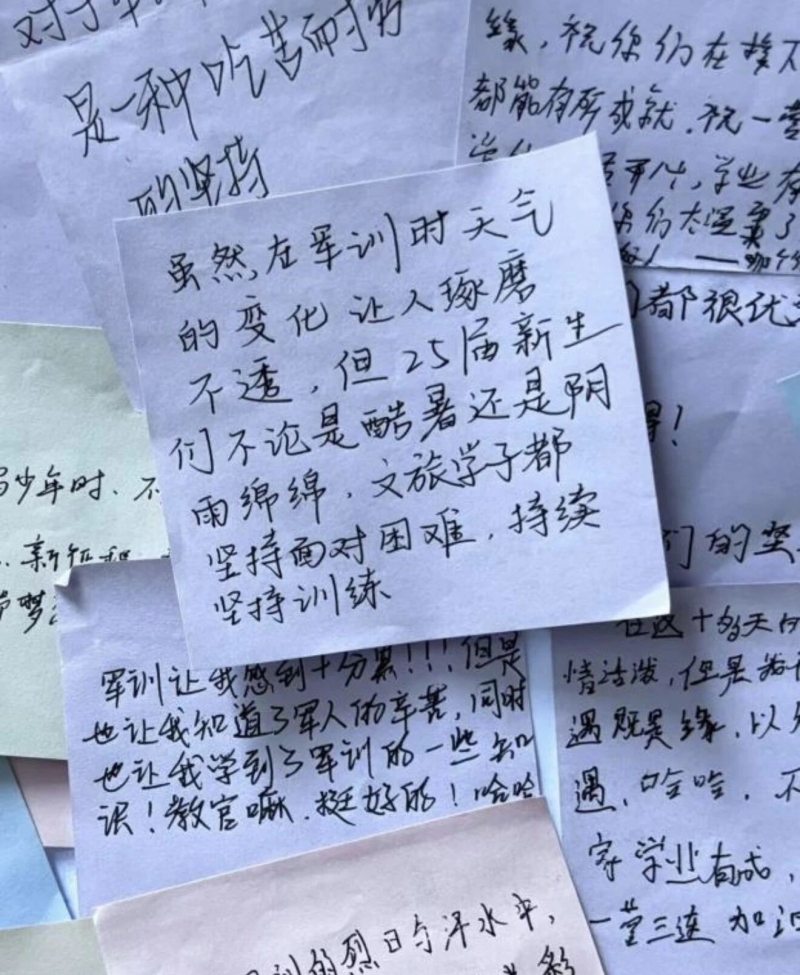 是一种吃苦而耐劳
的坚持
缘，祝你们在接下
都能有所成就，祝一营
学业有
你们太温柔了
都很优
虽然在军训时天气
的变化让人琢磨
不透，但25届新生
们不论是酷暑还是阴
雨绵绵，文旅学子都
坚持面对困难，持续
坚持训练
少年时、不
新征程
梦
们的坚
军训让我感到十分累！！！但是
也让我知道了军人的辛苦，同时
也让我学到了军训的一些知
识！教官嘛，挺好的！哈哈
在这十多天的
情活泼，但是我
遇既是缘，以
遇，哈哈，不
家学业有成，
一营三连 加油
的烈日与汗水中，